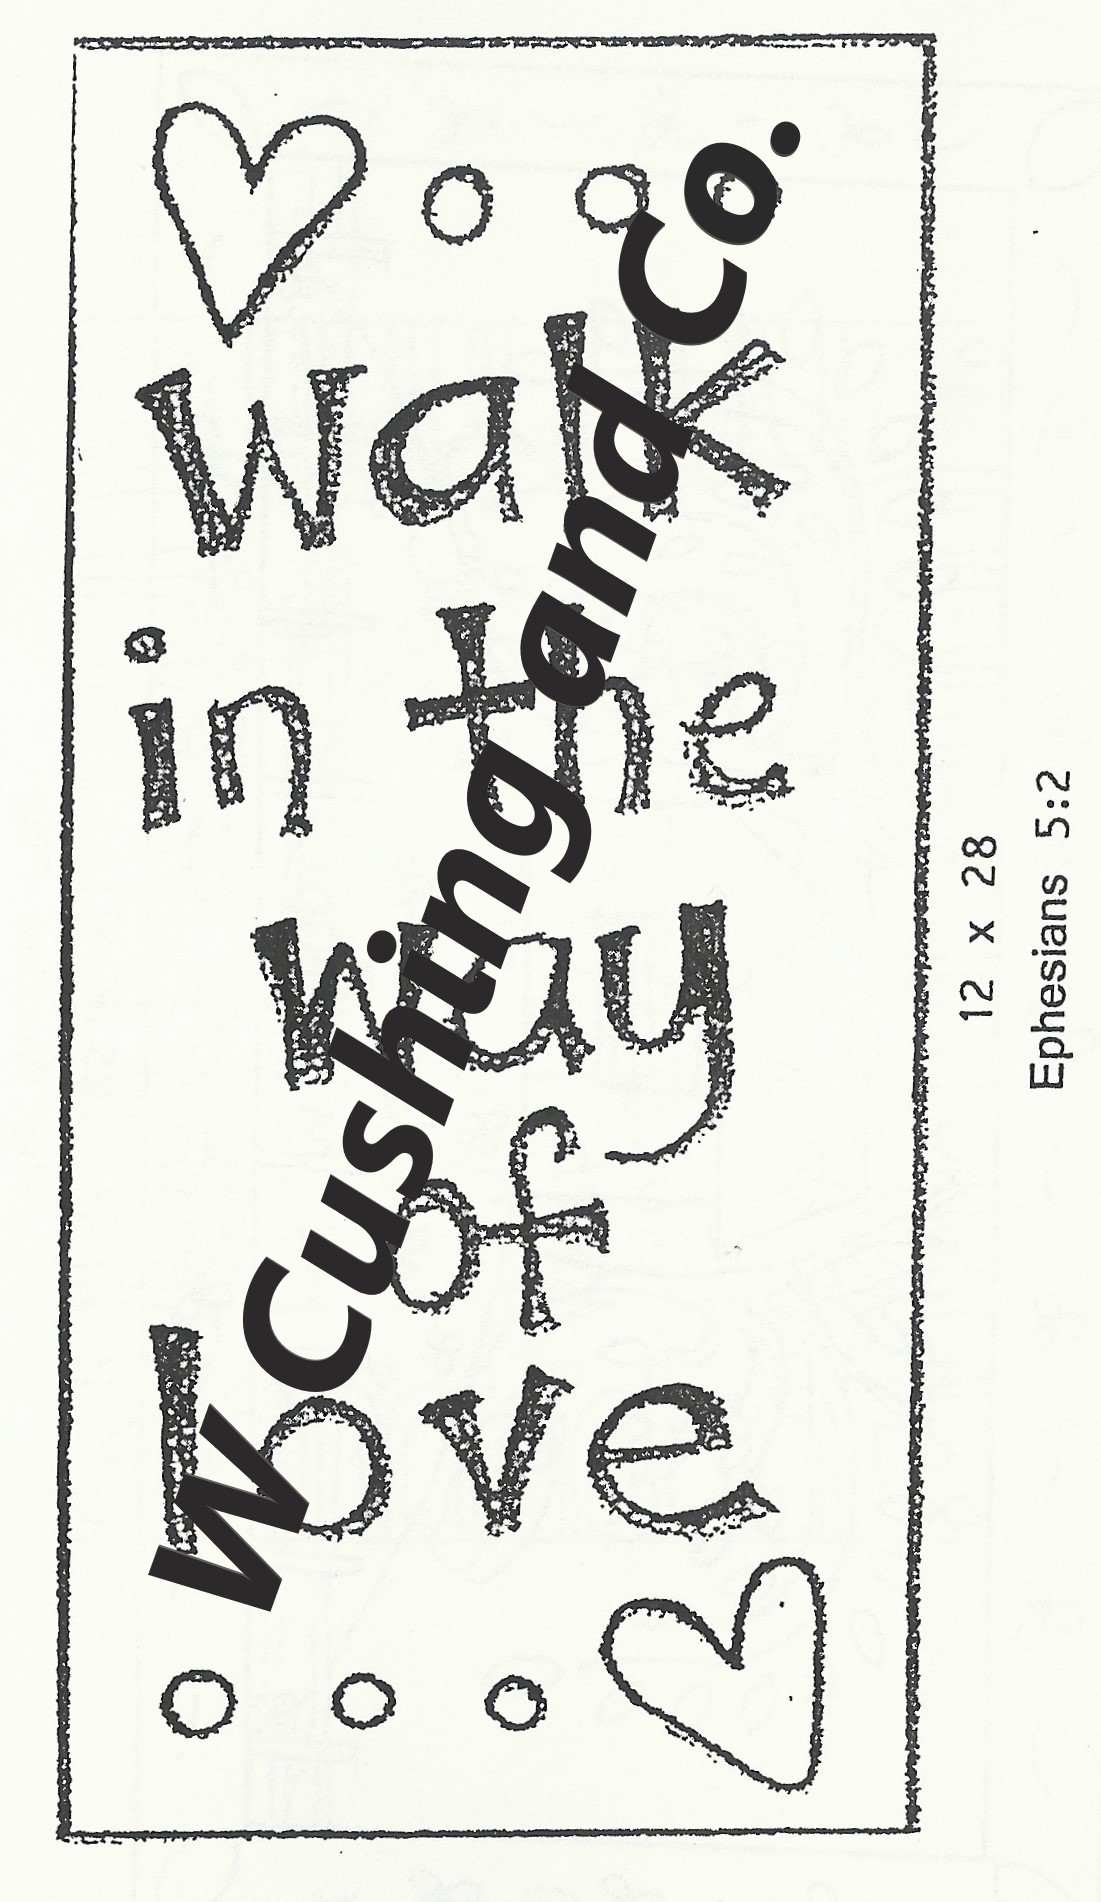 walk
in the
way
of
love
W Cushing and Co.
12 x 28
Ephesians 5:2